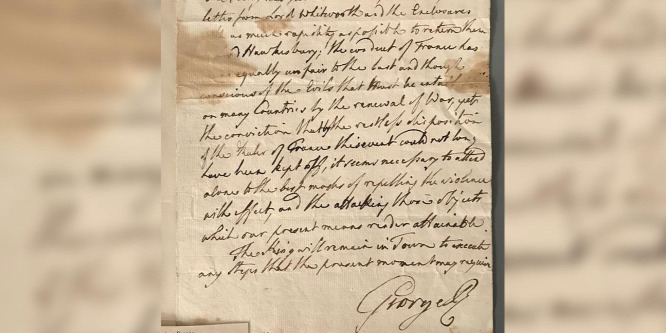 letters from Lord Whitworth and the Enclosures
as much rapidity as possible to return them
Hawkesbury; the conduct of France has
equally unfair to the last and though
conscious of the Evils that must be entail
on many Countries by the renewal of War, yet
the conviction that by the restless disposition
of the Ruler of France this event could not long
have been kept off, it seems necessary to attend
alone to the best modes of repelling the violence
with effect, and the attacking those objects
which our present means render attainable.
The King will remain in Town to execute
any steps that the present moment may require
George R